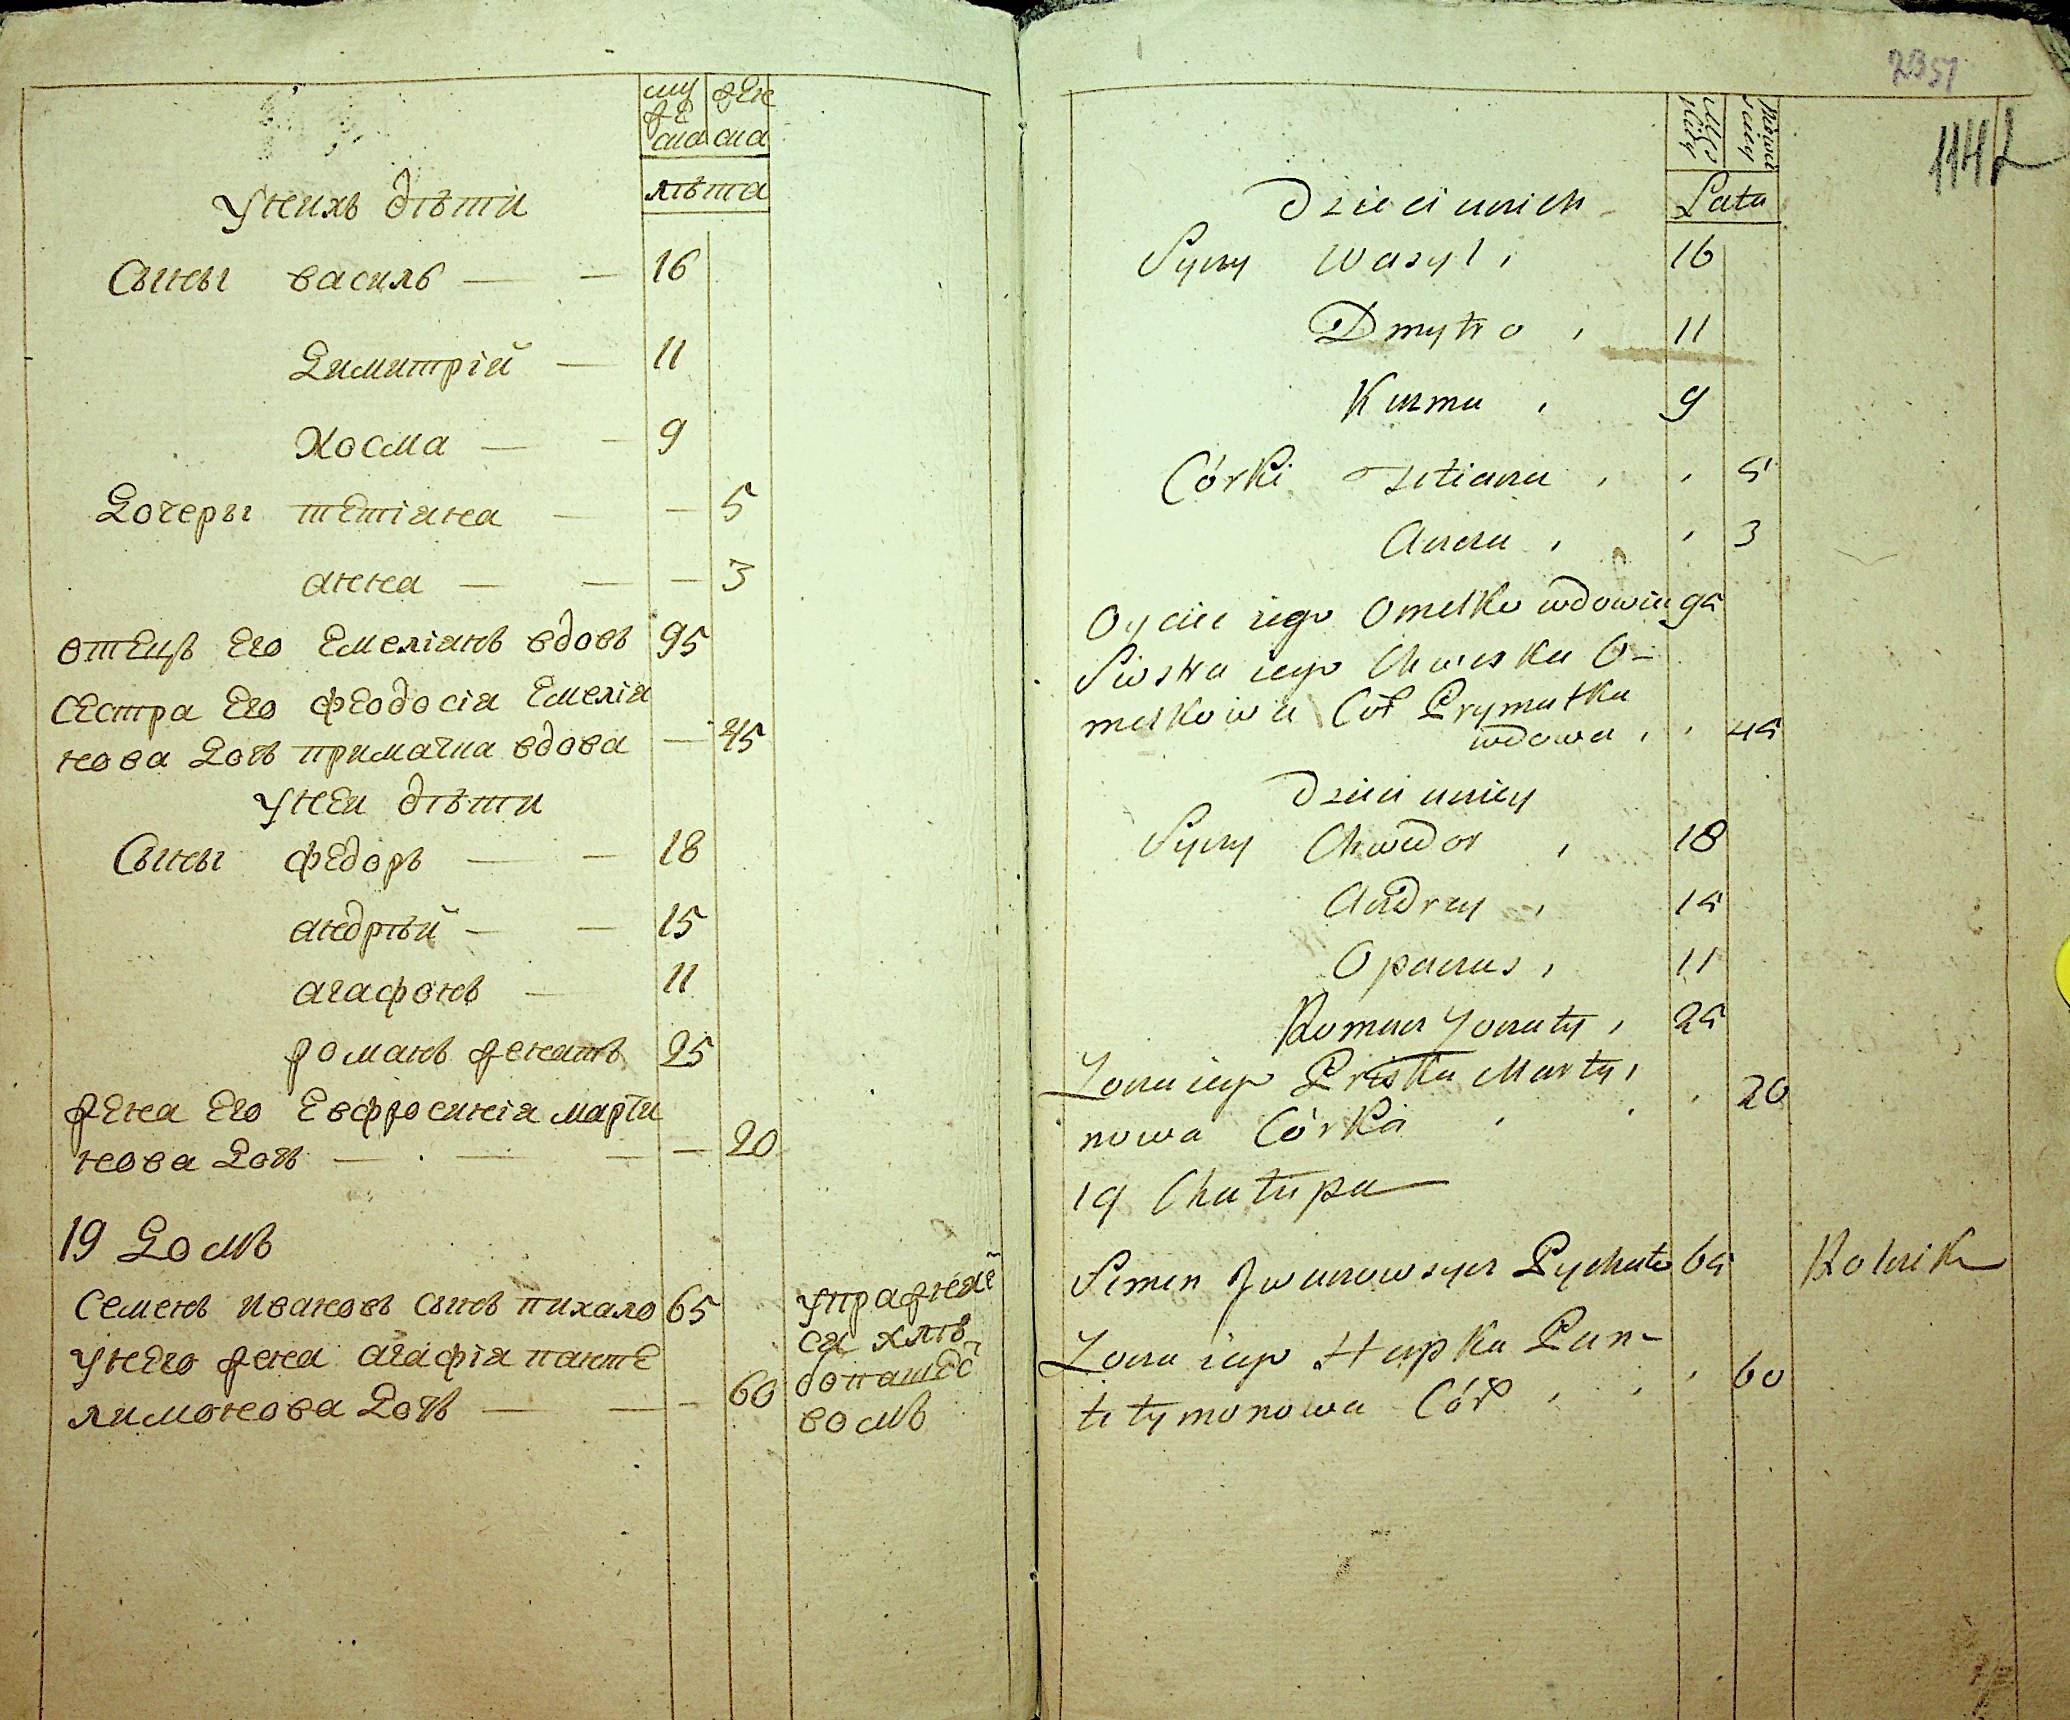 муже ска
жен ска
лѣта
У нихъ дѣти
Сыны василь — — 16
Димитрій — 11
Косма — — 9
Дочеры тетіана — — 5
анна — — — 3
отецъ его Емеліанъ вдовъ 95
сестра его феодосіа Емеліа
нова дочь примачиа вдова — 45
У неи дѣти
Сыны федоръ — — 18
андрѣй — — 15
агафонъ — 11
романъ женатъ 25
жена его Евфросиніа марти
нова дочь — — — — 20
19 Домъ
семенъ ивановъ сынъ пихало 65
у него жена агафіа панте
лимонова дочь — — — 60
упражнає
са хлѣ
бопашес
вомъ
2351
1142
Męs kiey
Niewie sciey
Lata
Dzieci u nich
Syny Wasyl 16
Dmytro 11
Kuzma 9
Córki Tetiana 5
Anna 3
Oyciec iego Omelko wdowiec 95
Siostra iego Chweska O-
melkowa Cór Prymaczka
wdowa 45
Dzieci u niey
Syny Chwedor 18
Andrey 15
Opanas 11
Roman Żonaty 25
Żona iego Priska Marty
nowa Córka 20
19 Chałupa
Semen Jwanow syn Pychało 65 Rolnik
Żona iego Hapka Pan-
tełymonowa Cór 60